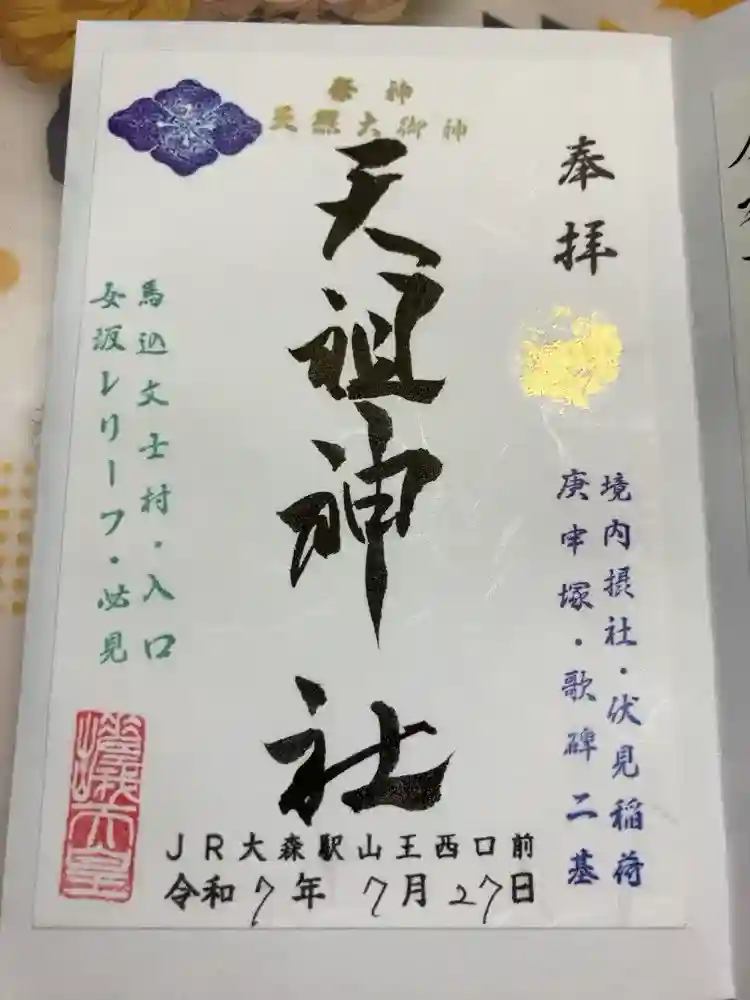 奉拝
境内摂社・伏見稲荷
庚申塚・歌碑二基
祭神
天照大御神
天祖神社
馬込文士村・入口
女坂レリーフ・必見
JR大森駅山王西口前
令和7年 7月27日